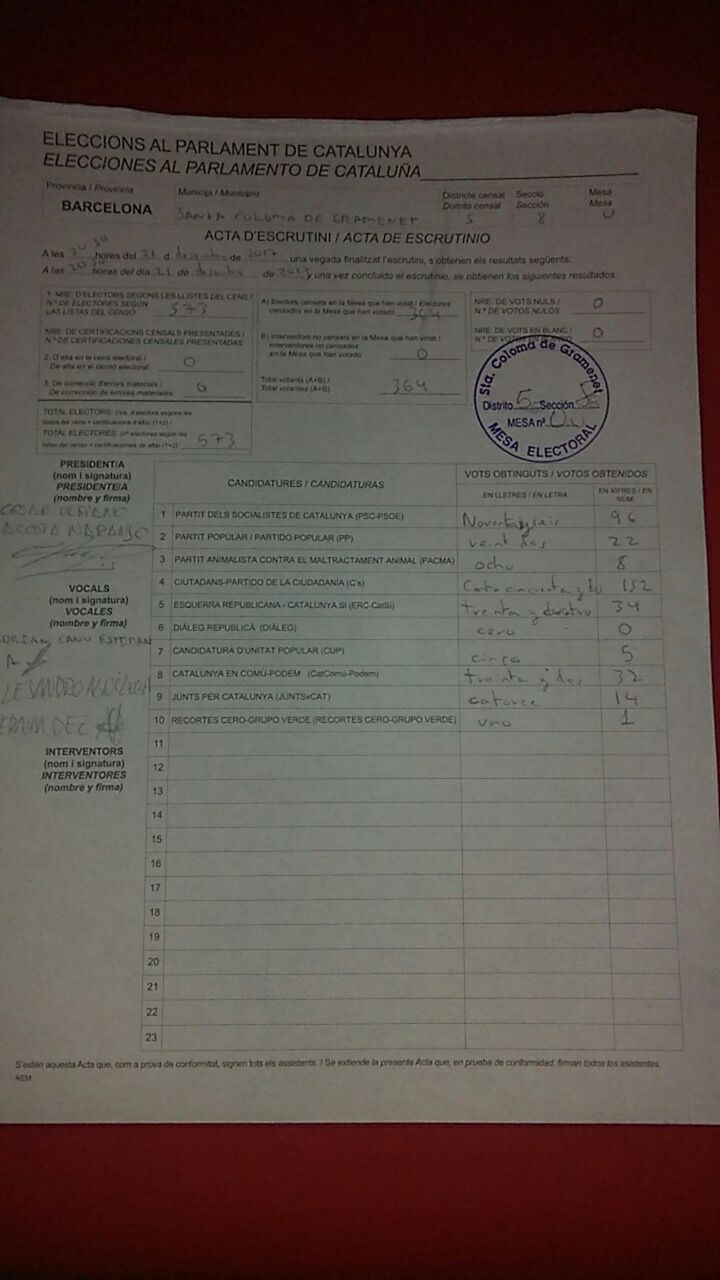 ELECCIONS AL PARLAMENT DE CATALUNYA
ELECCIONES AL PARLAMENTO DE CATALUÑA
Província / Provincia Municipi / Municipio Districte censal Secció Mesa
Distrito censal Sección Mesa
BARCELONA SANTA COLOMA DE GRAMENET 5 8 U
ACTA D'ESCRUTINI / ACTA DE ESCRUTINIO
A les hores del 21 d desembre de 2017, una vegada finalitzat l'escrutini, s'obtenen els resultats següents:
A las horas del día 21 de de 2017 y una vez concluido el escrutinio, se obtienen los siguientes resultados:
1. NRE. D'ELECTORS SEGONS LES LLISTES DEL CENS /
N.º DE ELECTORES SEGÚN
LAS LISTAS DEL CENSO 573
NRE. DE CERTIFICACIONS CENSALS PRESENTADES /
N.º DE CERTIFICACIONES CENSALES PRESENTADAS
2. D'alta en el cens electoral /
De alta en el censo electoral 0
3. De correcció d'errors materials /
De corrección de errores materiales 0
TOTAL ELECTORS (nre. d'electors segons les
llistes del cens + certificacions d'alta) (1+2) /
TOTAL ELECTORES (nº electores según las
listas del censo + certificaciones de alta) (1+2) 573
A) Electors censats en la Mesa que han votat / Electores
censados en la Mesa que han votado 364
B) Interventors no censats en la Mesa que han votat /
Interventores no censados
en la Mesa que han votado 0
Total votants (A+B) /
Total votantes (A+B) 364
NRE. DE VOTS NULS /
N.º DE VOTOS NULOS 0
NRE. DE VOTS EN BLANC /
N.º DE VOTOS EN BLANCO 0
Sta. Coloma de Gramenet
Distrito 5 Sección 8
MESA nº U
MESA ELECTORAL
PRESIDENT/A
(nom i signatura)
PRESIDENTE/A
(nombre y firma)
ACOSTA NARANJO
VOCALS
(nom i signatura)
VOCALES
(nombre y firma)
ADRIAN CANO ESTEBAN
INTERVENTORS
(nom i signatura)
INTERVENTORES
(nombre y firma)
CANDIDATURES / CANDIDATURAS VOTS OBTINGUTS / VOTOS OBTENIDOS
EN LLETRES / EN LETRA EN XIFRES / EN NÚM.
1 PARTIT DELS SOCIALISTES DE CATALUNYA (PSC-PSOE) Noventa y seis 96
2 PARTIT POPULAR / PARTIDO POPULAR (PP) veintidos 22
3 PARTIT ANIMALISTA CONTRA EL MALTRACTAMENT ANIMAL (PACMA) ocho 8
4 CIUTADANS-PARTIDO DE LA CIUDADANÍA (C's) 152
5 ESQUERRA REPUBLICANA - CATALUNYA SÍ (ERC-CatSí) treinta y cuatro 34
6 DIÀLEG REPUBLICÀ (DIÀLEG) cero 0
7 CANDIDATURA D'UNITAT POPULAR (CUP) cinco 5
8 CATALUNYA EN COMÚ-PODEM (CatComú-Podem) treinta y dos 32
9 JUNTS PER CATALUNYA (JUNTSxCAT) catorce 14
10 RECORTES CERO-GRUPO VERDE (RECORTES CERO-GRUPO VERDE) uno 1
11
12
13
14
15
16
17
18
19
20
21
22
23
S'estén aquesta Acta que, com a prova de conformitat, signen tots els assistents. / Se extiende la presente Acta que, en prueba de conformidad, firman todos los asistentes.
AEM